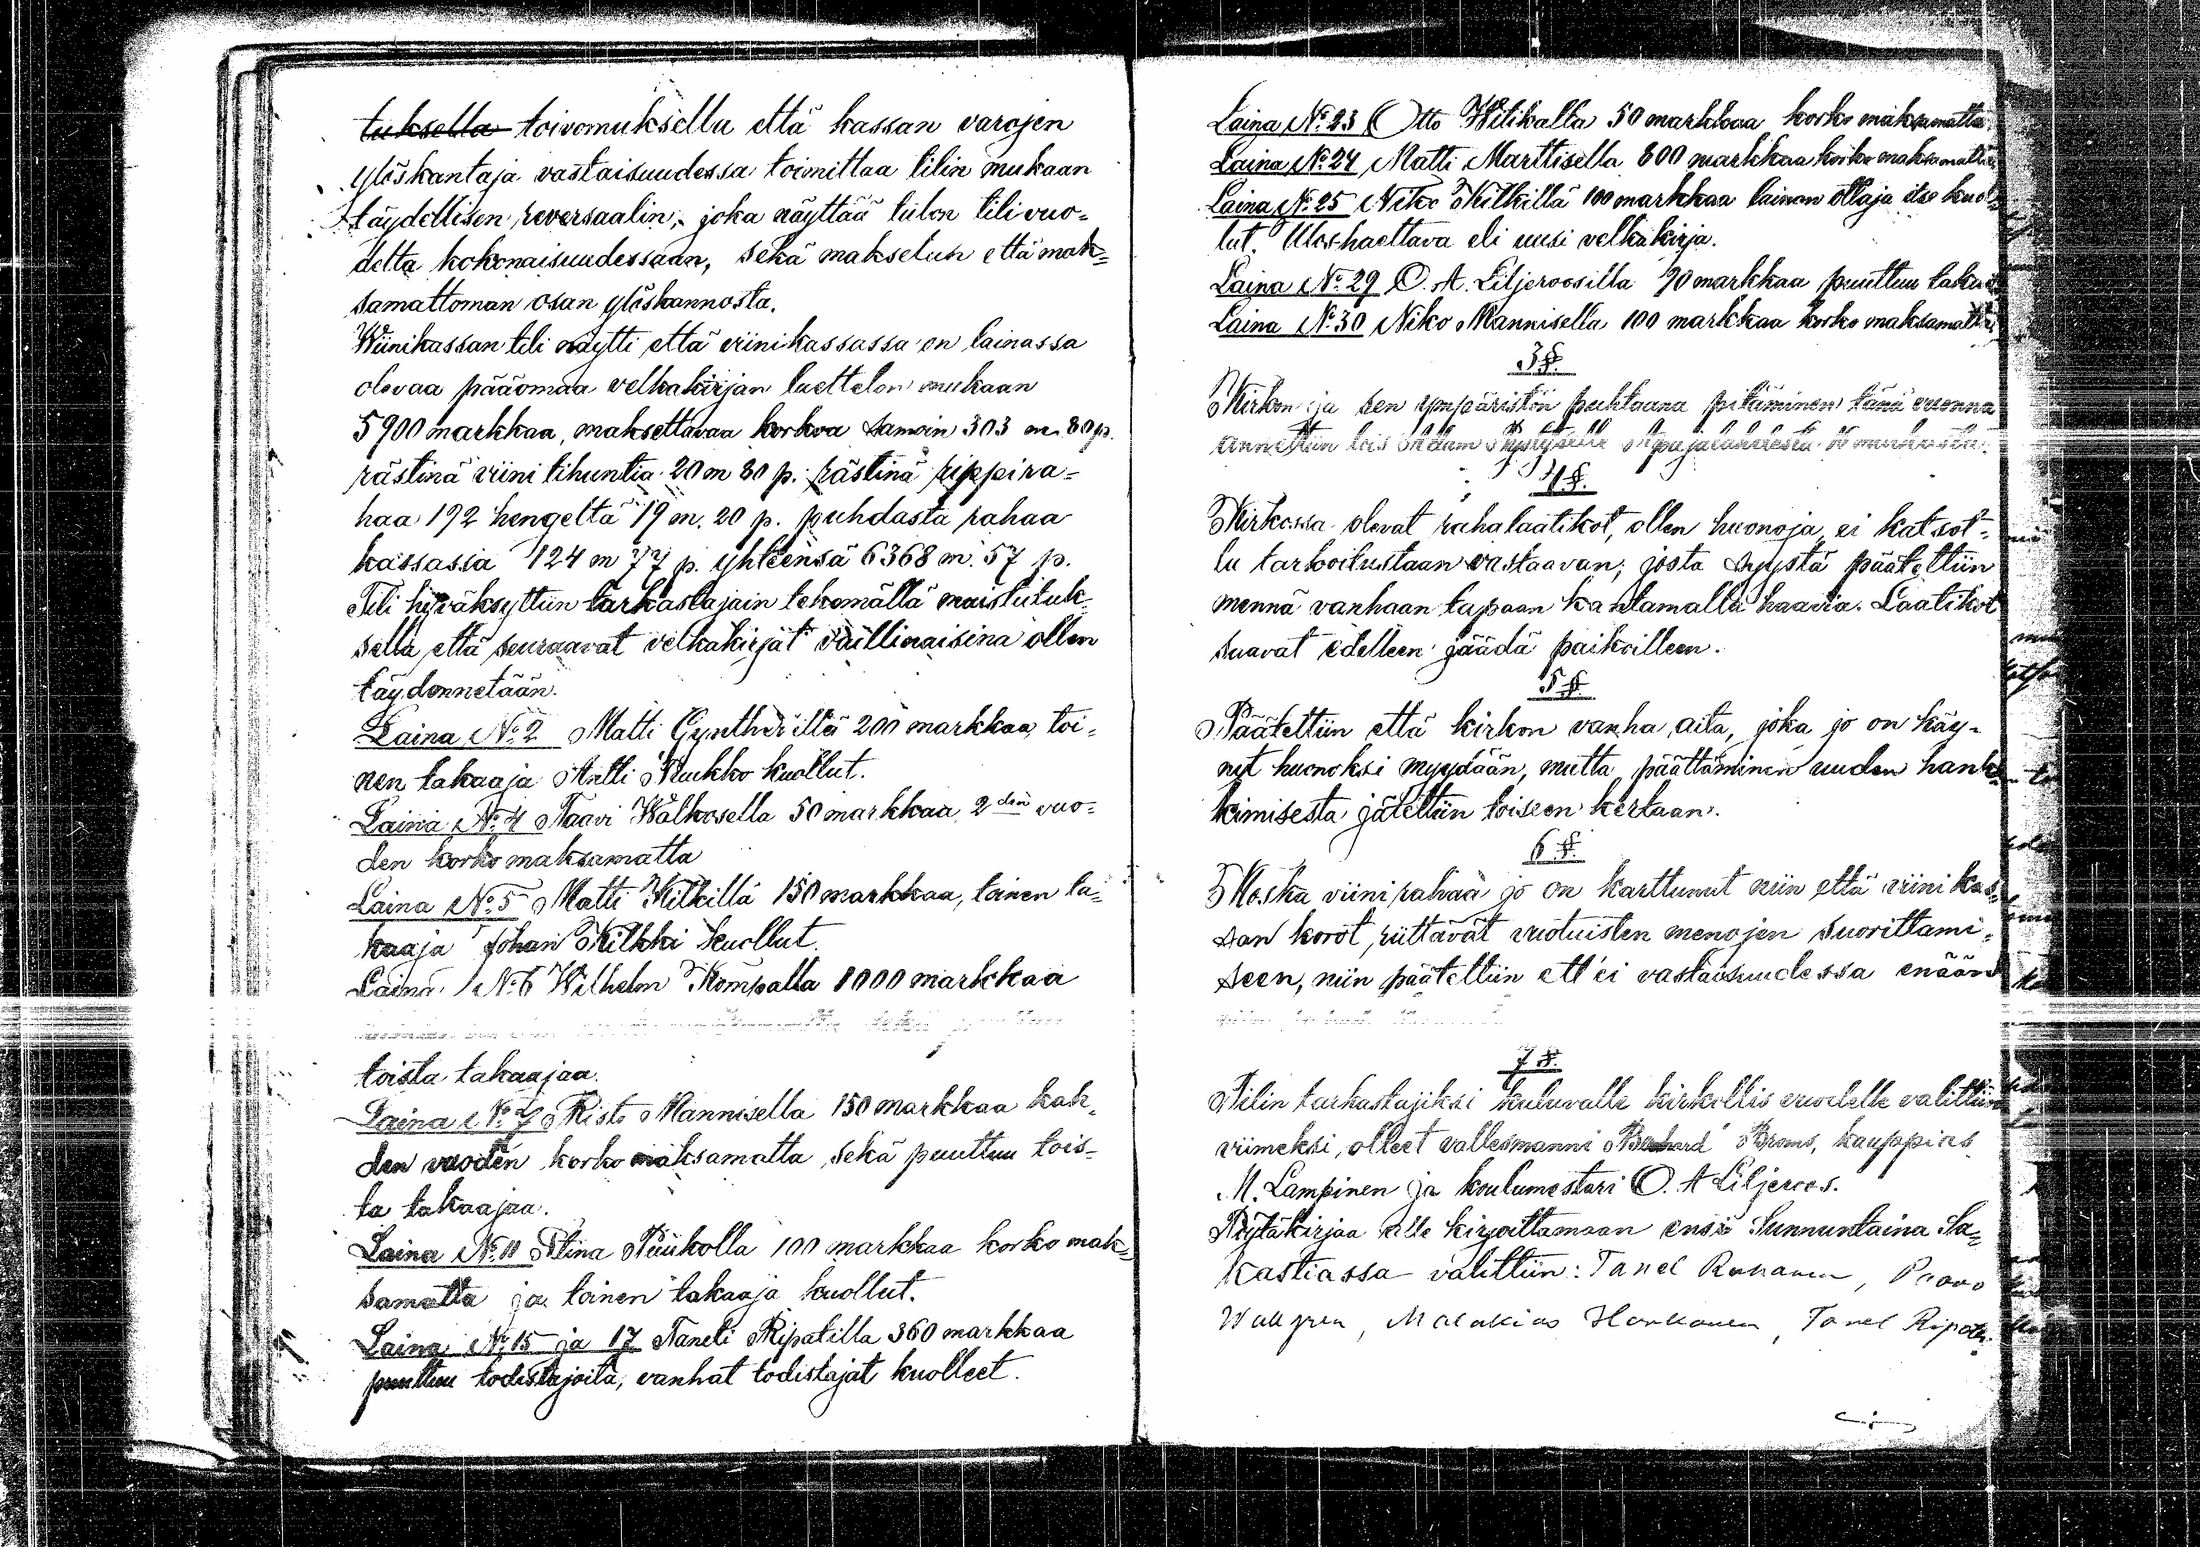 tuksella toivomuksella että kassan varojen
ylöskantaja vastaisuudessa toimittaa tilin mukaan
täydellisen reversaalin, joka näyttää tulon tili vuo-
delta kokonaisuudessaan, sekä makselun että mak-
samattoman osan ylöskannosta.
Wiinikassan tili näytti että viinikassassa on lainassa
olevaa pääomaa velkakirjan luettelon mukaan
5900 markkaa, maksettavaa korkoa samoin 303 m. 80 p.
rästinä viini tihuntia 20 m 80 p. rästinä rippira-
haa 192 hengeltä 19 m. 20 p. puhdasta rahaa
kassassa 124 m 77 p. yhteensä 6368 m. 57 p.
Tili hyväksyttiin tarkastajain tekemällä muistutuk-
sella että seuraavat velkakirjat vaillinaisina ollen
täydennetään.
Laina No 2 Matti Gynther'illä 200 markkaa, toi-
nen takaaja Antti Kukko kuollut.
Laina No 4 Taavi Walkosella 50 markkaa 2 den vuo-
den korko maksamatta
Laina No 5 Matti Kilkillä 150 markkaa, toinen ta-
kaaja Johan Kilkki kuollut.
Laina No 6 Wilhelm Kompalla 1000 markkaa
toista takaajaa.
Laina No 7 Risto Mannisella 150 markkaa kah-
den vuoden korko maksamatta, sekä puuttuu tois-
ta takaajaa.
Laina No 11 Stina Piukolla 100 markkaa korko mak-
samatta ja toinen takaaja kuollut.
Laina No 15 ja 17 Taneli Ripatilla 360 markkaa
puuttuu todistajoita, vanhat todistajat kuolleet.
Laina No 23 Otto Witikalla 50 markkaa korko maksamatta
Laina No 24 Matti Marttisella 800 markkaa korko maksamatta
Laina No 25 Niko Kilkillä 100 markkaa lainan ottaja itse kuol-
lut. Uloshaettava eli uusi velkakirja.
Laina No 29 O. A. Liljeroosilla 70 markkaa puuttuu
Laina No 30 Niko Mannisella 100 markkaa korko maksamatta
3 §.
Kirkon ja sen ympäristön puhtaana pitäminen tänä vuonna
annettiin
4 §.
Kirkossa olevat rahalaatikot, ollen huonoja, ei katsot-
tu tarkoitustaan vastaavan; josta syystä päätettiin
mennä vanhaan tapaan kantamalla haavia. Laatikot
suavat edelleen jäädä paikoilleen.
5 §.
Päätettiin että kirkon vanha aita, joka jo on käy-
nyt huonoksi myydään, mutta päättäminen uuden hank-
kimisesta jätettiin toiseen kertaan.
6 §.
Koska viinirahaa jo on karttunut niin että viinikas-
san korot, riittävät vuotuisten menojen suorittami-
seen, niin päätettiin ett'ei vastaisuudessa enään
7 §.
Tilin tarkastajiksi kuluvalle kirkollis vuodelle valittiin
viimeksi, olleet vallesmanni Broms, kauppias
M. Lampinen ja koulumestari O. A Liljeroos.
Pöytäkirjaa alle kirjoittamaan ensi Sunnuntaina Sa-
kastiassa valittiin: Tanel Rukanen, Paavo
Malakias Honkanen, Tanel Ripati.